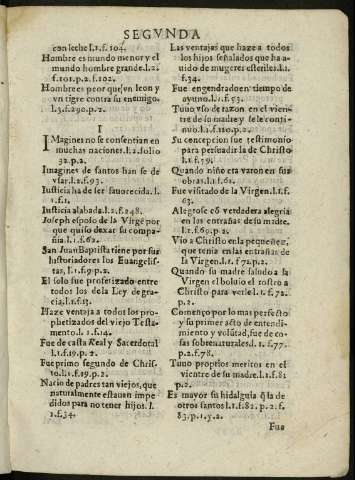 SEGVNDA
con leche l.1.f. 104.
Hombre es mundo menor y el
mundo hombre grande.l.2.
f.101.p.2.f.102.
Hombre es peor que vn leon y
vn tigre contra su enemigo.
l.3.f.290.p.2.
I
IMagines no se consentian en
muchas naciones.l.2.folio
32.p.2.
Imagines de santos han se de
vsar.l.2.f.93.
Iusticia ha de ser fauorecida.l.
1.f.1.
Iusticia alabada.l.2.f.248.
Ioseph esposo de la Virgẽ por
que quiso dexar su compa-
ñia.l.1.f.62.
San Iuan Baptista tiene por sus
historiadores los Euangelis-
tas, l.1.f.9.p.2.
El solo fue profetizado entre
todos los de la Ley de gra-
cia,l.1.f.13.
Haze ventaja a todos los pro-
phetizados del viejo Testa-
mento.l. 1.f.14.
Fue de casta Real y Sacerdotal
l.1.f.19.p. 2.
Fue primo segundo de Chris-
to.l.1.f.19.p.2.
Nacio de padres tan viejos, que
naturalmente estauan impe
didos para no tener hijos. l.
1.f.34.
Las ventajas que haze a todos
los hijos señalados que ha a-
uido de mugeres esteriles.l.1.
f.34.
Fue engendrado en tiempo de
ayuno.l.1.f.53.
Tuuo vso de razon en el vien-
tre de su madre y se le conti-
nuo.l.1.f.110.p.2.
Su concepcion fue testimonio
para persuadir la de Christo
l.1.f.59.
Quando niño era varon en sus
obras.l.1.f.61.
Fue visitado de la Virgen.l.1.f.
63.
Alegrose cõ verdadera alegria
en las entrañas de su madre.
l.1.f.69.p.2.
Vio a Christo en la pequeñez,
que tenia en las entrañas de
la Virgen.l.1.f 72.p.2.
Quando su madre saludo a la
Virgen el boluio el rostro a
Christo para verle.l.1.f. 72.
p.2.
Començo por lo mas perfecto
y su primer acto de entendi-
miento y volũtad, fue de co-
sas sobrenaturales.l. 1.f.77.
p.2.f.78.
Tuuo proprios meritos en el
vientre de su madre.l.1.f.81
p.2.
Es mayor su hidalguia q̃ la de
otros santos l.1.f.82. p.2. f.
83.p.1.y.2.
Fue